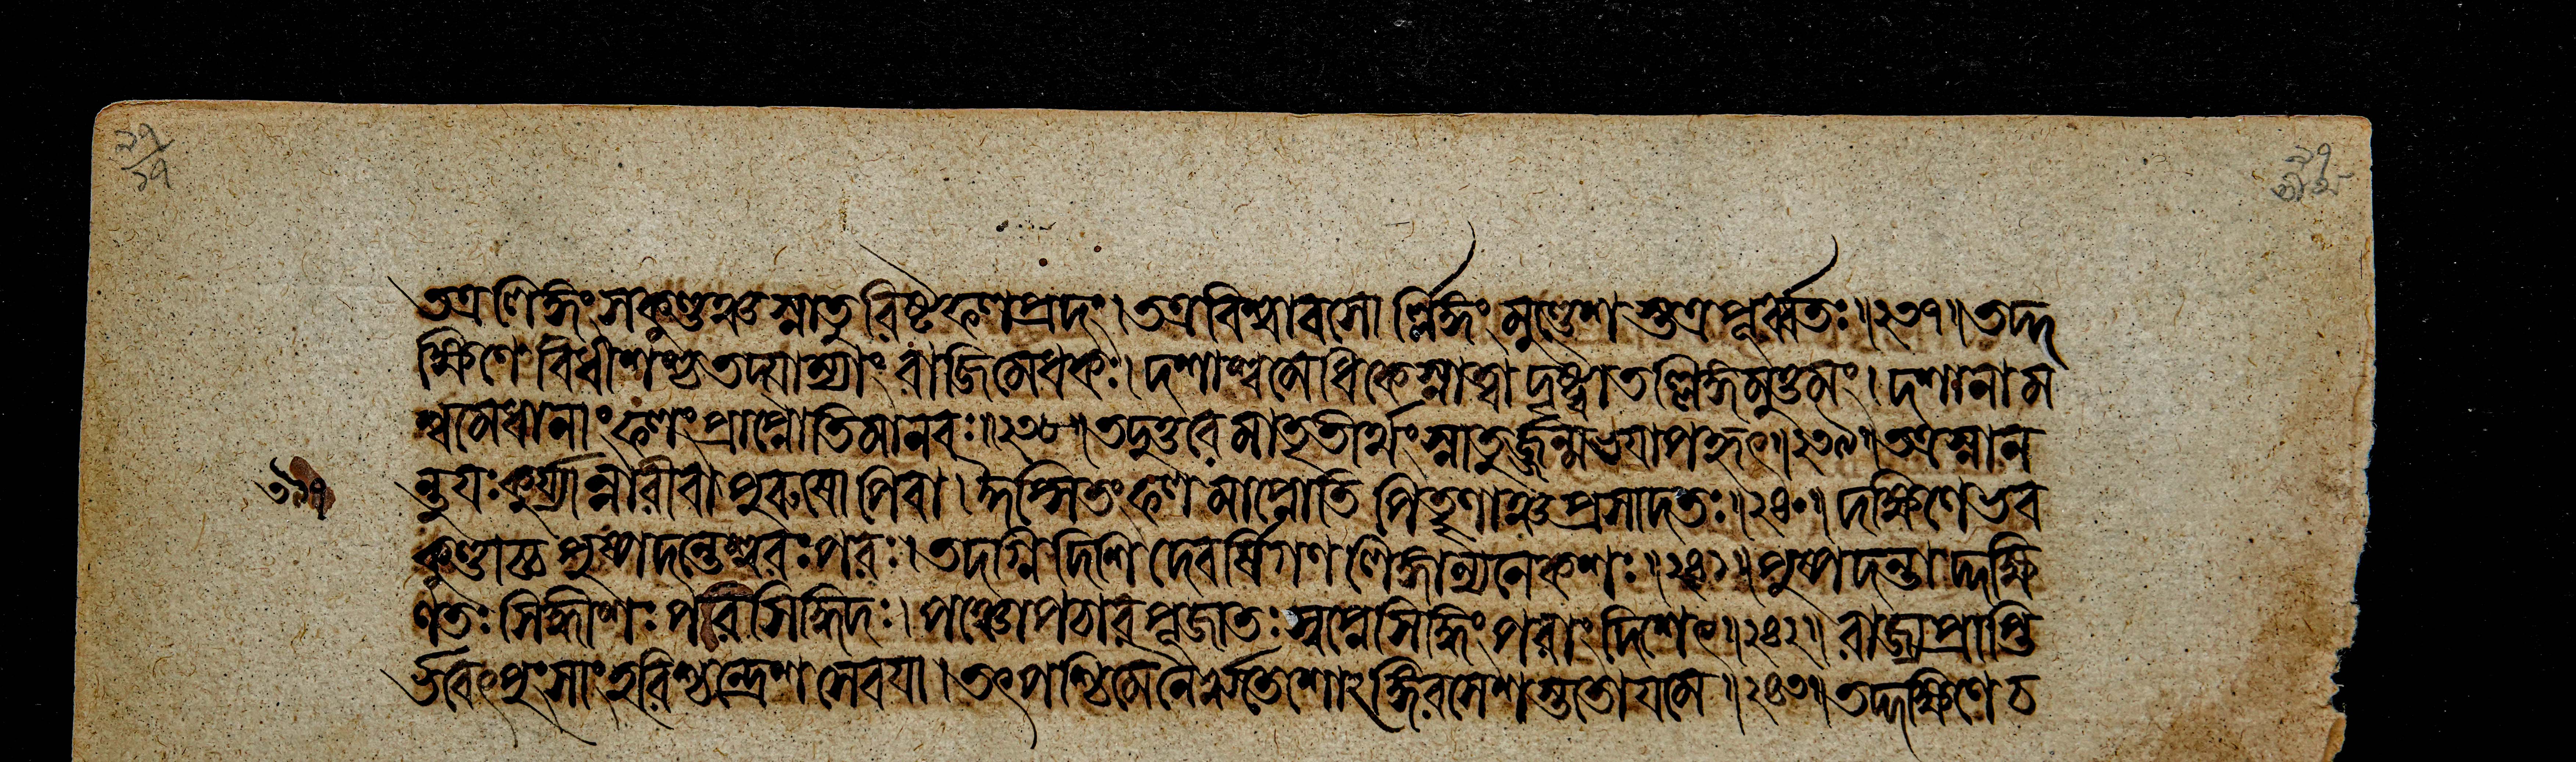 তত্র লিঙ্গং সকুণ্ডঞ্চ স্নাতুরিষ্টফলপ্রদং। তত্র বিশ্বাবসোর্ল্লিঙ্গং মুণ্ডেশস্তত্র পূর্ব্বতঃ॥২৩৭॥ তদ্দ
ক্ষিণে বিধীশশ্চ তদ্যাম্যাং বাজিমেধকঃ। দশাশ্বমেধিকে স্নাত্বা দৃষ্ট্বা তল্লিঙ্গমুত্তমং। দশানাম
শ্বমেধানাং ফলং প্রাপ্নোতি মানবঃ॥২৩৮॥ তদুত্তরে মাতৃতীর্থং স্নাতুর্জ্জন্মভয়াপহৃৎ॥২৩৯॥ তত্র স্নান
ন্তু যঃ কুর্য্যান্নারী বা পুরুষোপি বা। ঈপ্সিতং ফলমাপ্নোতি পিতৄণাঞ্চ প্রসাদতঃ॥২৪০॥ দক্ষিণে ভব
কুণ্ডাচ্চ পুষ্পদন্তেশ্বরঃ পরঃ। তদগ্নিদিশি দেবর্ষিগণলিঙ্গান্যনেকশঃ॥২৪১॥ পুষ্পদন্তাদ্দক্ষি
ণতঃ সিদ্ধীশঃ পরসিদ্ধিদঃ। পঞ্চোপচারপূজাতঃ স্বপ্নে সিদ্ধিং পরাং দিশেৎ॥২৪২॥ রাজ্যপ্রাপ্তি
র্ভবেৎ পুংসাং হরিশ্চন্দ্রেশসেবয়া। তৎপশ্চিমে নৈর্ঋতেশোঽঙ্গিরসেশস্ততো যমে॥২৪৩॥ তদ্দক্ষিণে চ